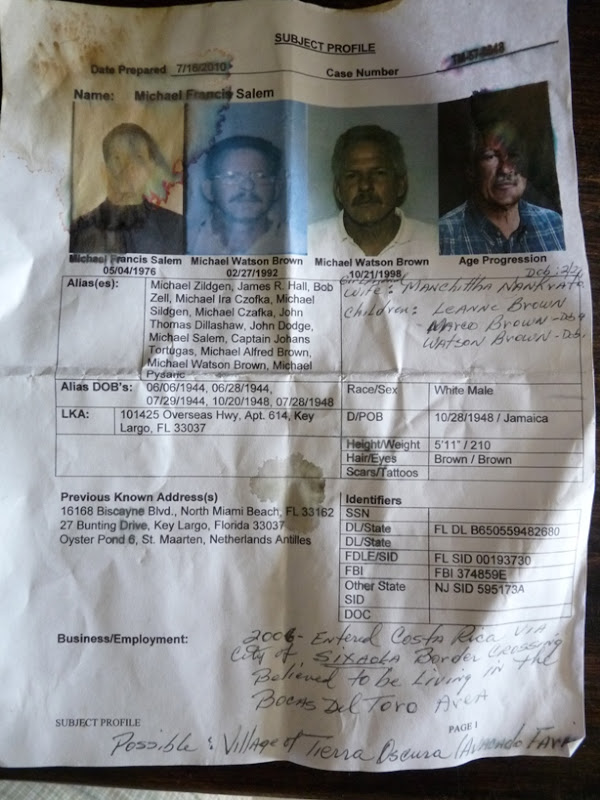 SUBJECT PROFILE
Date Prepared 7/16/2010
Case Number
Name: Michael Francis Salem
Michael Francis Salem Michael Watson Brown Michael Watson Brown Age Progression
05/04/1976 02/27/1992 10/21/1998
Alias(es): Michael Zildgen, James R. Hall, Bob
Zell, Michael Ira Czofka, Michael
Sildgen, Michael Czafka, John
Thomas Dillashaw, John Dodge,
Michael Salem, Captain Johans
Tortugas, Michael Alfred Brown,
Michael Watson Brown, Michael
Pysaric
Wife: Manchittha Nankrato
Children: Leanne Brown
- Marco Brown - Dob
Watson Brown - Dob
Alias DOB's: 06/06/1944, 06/28/1944,
07/29/1944, 10/20/1948, 07/28/1948
Race/Sex White Male
LKA: 101425 Overseas Hwy, Apt. 614, Key
Largo, FL 33037
D/POB 10/28/1948 / Jamaica
Height/Weight 5'11" / 210
Hair/Eyes Brown / Brown
Scars/Tattoos
Previous Known Address(s)
16168 Biscayne Blvd., North Miami Beach, FL 33162
27 Bunting Drive, Key Largo, Florida 33037
Oyster Pond 6, St. Maarten, Netherlands Antilles
Identifiers
SSN
DL/State FL DL B650559482680
DL/State
FDLE/SID FL SID 00193730
FBI FBI 374859E
Other State NJ SID 595173A
SID
DOC
Business/Employment:
2006 - Entered Costa Rica via
City of Sixaola Border Crossing
Believed to be Living in the
Bocas Del Toro Area
SUBJECT PROFILE PAGE 1
Possible: Village of Tierra Oscura (Avacado Farm